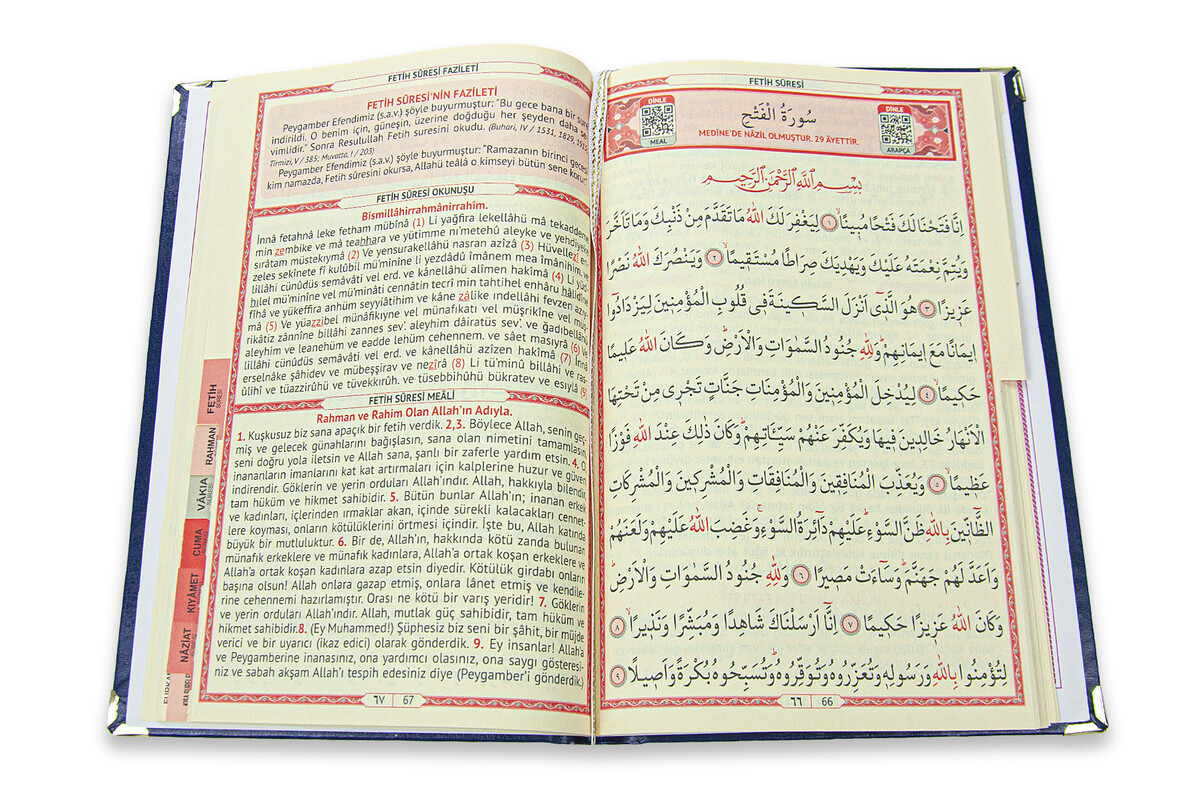 FETİH SÛRESİ
DİNLE
MEAL
سُورَةُ الْفَتْحِ
MEDİNE'DE NÂZİL OLMUŞTUR. 29 ÂYETTİR.
DİNLE
ARAPÇA
بِسْمِ اللّٰهِ الرَّحْمٰنِ الرَّحِيمِ
اِنَّا فَتَحْنَا لَكَ فَتْحًا مُبِينًاۙ ﴿١﴾ لِيَغْفِرَ لَكَ اللّٰهُ مَا تَقَدَّمَ مِنْ ذَنْبِكَ وَمَا تَاَخَّرَ
وَيُتِمَّ نِعْمَتَهُ عَلَيْكَ وَيَهْدِيَكَ صِرَاطًا مُسْتَقِيمًاۙ ﴿٢﴾ وَيَنْصُرَكَ اللّٰهُ نَصْرًا
عَزِيزًا ﴿٣﴾ هُوَ الَّذٖٓي اَنْزَلَ السَّكٖينَةَ فٖي قُلُوبِ الْمُؤْمِنٖينَ لِيَزْدَادُٓوا
اٖيمَانًا مَعَ اٖيمَانِهِمْؕ وَلِلّٰهِ جُنُودُ السَّمٰوَاتِ وَالْاَرْضِؕ وَكَانَ اللّٰهُ عَلٖيمًا
حَكٖيمًاۙ ﴿٤﴾ لِيُدْخِلَ الْمُؤْمِنٖينَ وَالْمُؤْمِنَاتِ جَنَّاتٍ تَجْرٖي مِنْ تَحْتِهَا
الْاَنْهَارُ خَالِدٖينَ فٖيهَا وَيُكَفِّرَ عَنْهُمْ سَيِّـَٔاتِهِمْؕ وَكَانَ ذٰلِكَ عِنْدَ اللّٰهِ فَوْزًا
عَظٖيمًاۙ ﴿٥﴾ وَيُعَذِّبَ الْمُنَافِقٖينَ وَالْمُنَافِقَاتِ وَالْمُشْرِكٖينَ وَالْمُشْرِكَاتِ
الظَّٓانّٖينَ بِاللّٰهِ ظَنَّ السَّوْءِؕ عَلَيْهِمْ دَٓائِرَةُ السَّوْءِۚ وَغَضِبَ اللّٰهُ عَلَيْهِمْ وَلَعَنَهُمْ
وَاَعَدَّ لَهُمْ جَهَنَّمَؕ وَسَٓاءَتْ مَصٖيرًا ﴿٦﴾ وَلِلّٰهِ جُنُودُ السَّمٰوَاتِ وَالْاَرْضِؕ
وَكَانَ اللّٰهُ عَزٖيزًا حَكٖيمًا ﴿٧﴾ اِنَّٓا اَرْسَلْنَاكَ شَاهِدًا وَمُبَشِّرًا وَنَذٖيرًاۙ ﴿٨﴾
لِتُؤْمِنُوا بِاللّٰهِ وَرَسُولِهٖ وَتُعَزِّرُوهُ وَتُوَقِّرُوهُؕ وَتُسَبِّحُوهُ بُكْرَةً وَاَصٖيلًا ﴿٩﴾
٦٦ 66
FETİH SÛRESİ FAZİLETİ
FETİH SÛRESİ'NİN FAZİLETİ
Peygamber Efendimiz (s.a.v.) şöyle buyurmuştur: "Bu gece bana bir sure
indirildi. O benim için, güneşin, üzerine doğduğu her şeyden daha se-
vimlidir." Sonra Resulullah Fetih suresini okudu. (Buhari, IV / 1531, 1829, 1915;
Tirmizi, V / 385; Muvatta, I / 203)
Peygamber Efendimiz (s.a.v.) şöyle buyurmuştur: "Ramazanın birinci gecesi
kim namazda, Fetih sûresini okursa, Allahü teâlâ o kimseyi bütün sene korur."
FETİH SÛRESİ OKUNUŞU
Bismillâhirrahmânirrahîm.
İnnâ fetahnâ leke fetham mübînâ (1) Li yağfira lekellâhü mâ tekaddeme
min zembike ve mâ teahhara ve yütimme ni'metehû aleyke ve yehdiyeke
sırâtam müstekıymâ (2) Ve yensurakellâhü nasran azîzâ (3) Hüvellezî en-
zeles sekînete fî kulûbil mü'minîne li yezdâdû îmânem mea îmânihim, ve
lillâhi cünûdüs semâvâti vel erd. ve kânellâhü alîmen hakîmâ (4) Li yüd-
hilel mü'minîne vel mü'minâti cennâtin tecrî min tahtihel enhâru hâlidîne
fîhâ ve yükeffira anhüm seyyiâtihim ve kâne zâlike ındellâhi fevzen azıy-
mâ (5) Ve yüazzibel münâfikıyne vel münafikati vel müşrikîne vel müş-
rikâtiz zânnîne billâhi zannes sev'. aleyhim dâiratüs sev'. ve ğadıbellâhü
aleyhim ve leanehüm ve eadde lehüm cehennem. ve sâet masıyrâ (6) Ve
lillâhi cünûdüs semâvâti vel erd. ve kânellâhü azîzen hakîmâ (7) İnnâ
erselnâke şâhidev ve mübeşşirav ve nezîrâ (8) Li tü'minû billâhi ve ras-
ûlihî ve tüazzirûhü ve tüvekkırûh. ve tüsebbihûhü bükratev ve esıylâ (9)
FETİH SÛRESİ MEÂLİ
Rahman ve Rahim Olan Allah'ın Adıyla.
1. Kuşkusuz biz sana apaçık bir fetih verdik. 2,3. Böylece Allah, senin geç-
miş ve gelecek günahlarını bağışlasın, sana olan nimetini tamamlasın,
seni doğru yola iletsin ve Allah sana, şanlı bir zaferle yardım etsin. 4. O
inananların imanlarını kat kat artırmaları için kalplerine huzur ve güven
indirendir. Göklerin ve yerin orduları Allah'ındır. Allah, hakkıyla bilendir,
tam hüküm ve hikmet sahibidir. 5. Bütün bunlar Allah'ın; inanan erkek
ve kadınları, içlerinden ırmaklar akan, içinde sürekli kalacakları cennet-
lere koyması, onların kötülüklerini örtmesi içindir. İşte bu, Allah katında
büyük bir mutluluktur. 6. Bir de, Allah'ın, hakkında kötü zanda bulunan
münafık erkeklere ve münafık kadınlara, Allah'a ortak koşan erkeklere ve
Allah'a ortak koşan kadınlara azap etsin diyedir. Kötülük girdabı onların
başına olsun! Allah onlara gazap etmiş, onlara lânet etmiş ve kendile-
rine cehennemi hazırlamıştır. Orası ne kötü bir varış yeridir! 7. Göklerin
ve yerin orduları Allah'ındır. Allah, mutlak güç sahibidir, tam hüküm ve
hikmet sahibidir.8. (Ey Muhammed!) Şüphesiz biz seni bir şâhit, bir müjde
verici ve bir uyarıcı (ikaz edici) olarak gönderdik. 9. Ey insanlar! Allah'a
ve Peygamberine inanasınız, ona yardımcı olasınız, ona saygı gösteresi-
niz ve sabah akşam Allah'ı tespih edesiniz diye (Peygamber'i gönderdik.)
٦٧ 67
FETİH
SÛRESİ
RAHMAN
VÂKIA
CUMA
KIYÂMET
NÂZİAT